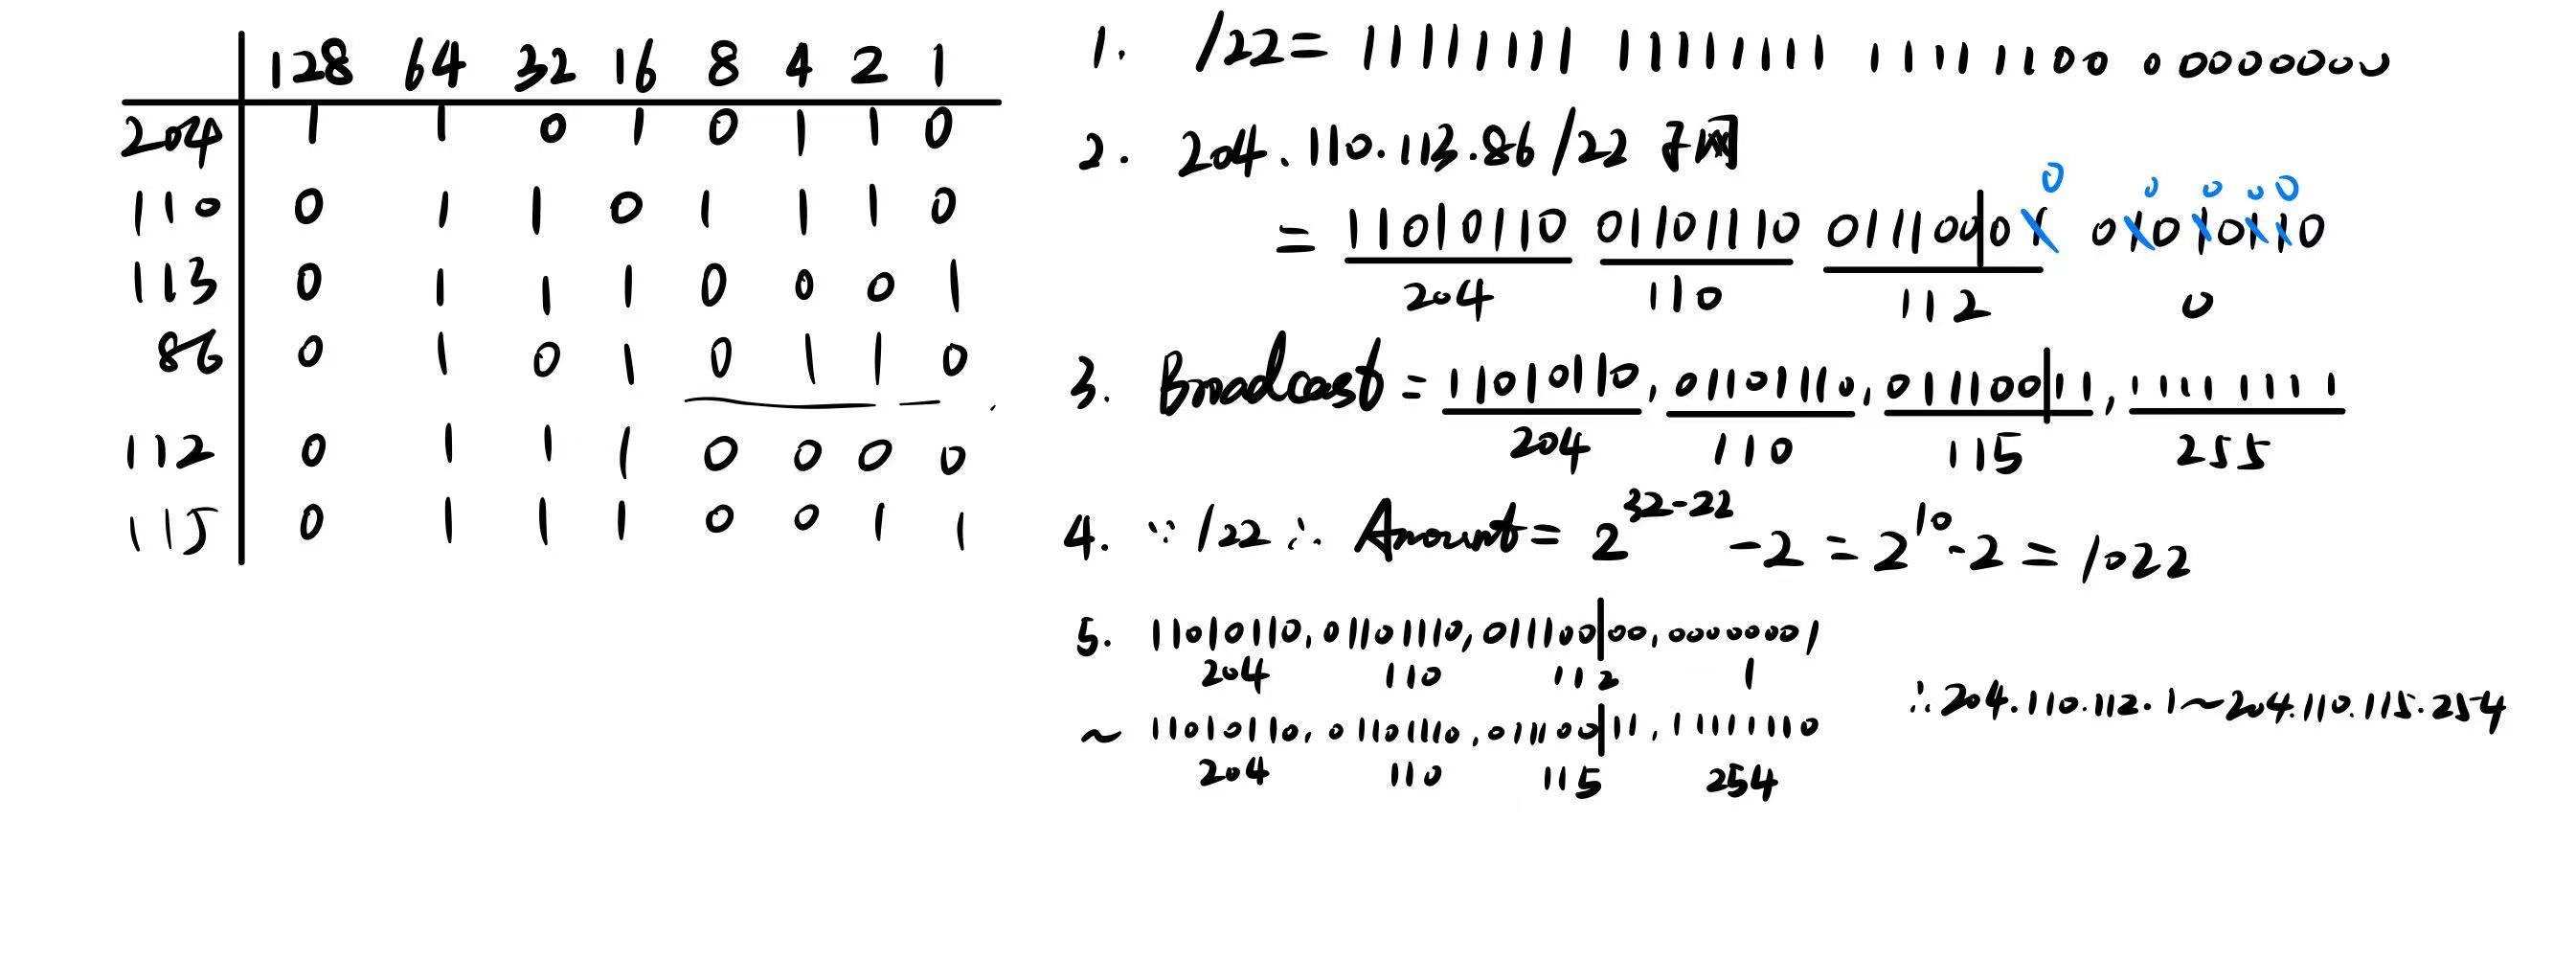 128 64 32 16 8 4 2 1
204 1 1 0 1 0 1 1 0
110 0 1 1 0 1 1 1 0
113 0 1 1 1 0 0 0 1
86 0 1 0 1 0 1 1 0
112 0 1 1 1 0 0 0 0
115 0 1 1 1 0 0 1 1
1. /22= 11111111 11111111 11111100 00000000
2. 204.110.113.86/22 子网
0 0 0 0 0
= 11010110 01101110 011100|01 01010110
204 110 112 0
3. Broadcast = 11010110, 01101110, 011100|11, 11111111
204 110 115 255
4. ∵ /22 ∴ Amount = 2^(32-22) - 2 = 2^10 - 2 = 1022
5. 11010110, 01101110, 011100|00, 00000001
204 110 112 1
~ 11010110, 01101110, 011100|11, 11111110
204 110 115 254
∴ 204.110.112.1~204.110.115.254